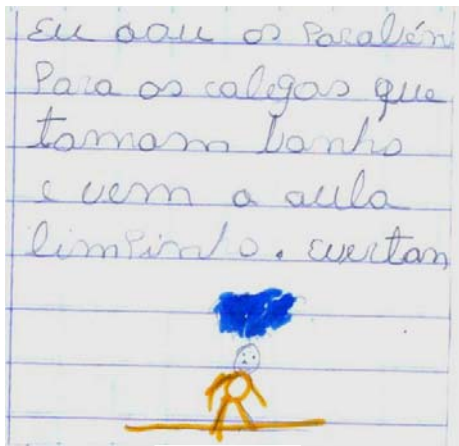 Eu dou os Parabén
Para os colegas que
tomam banho
e vem a aula
limPinho. everton